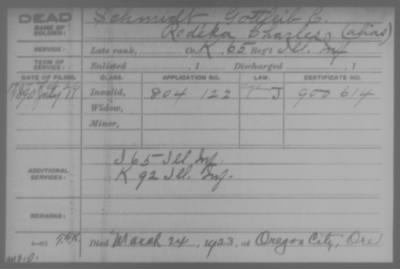 DEAD Schmidt Gottlieb C.
NAME OF SOLDIER: Redika Charles (alias)
SERVICE: Late rank, Co. K, 65 Reg't Ill. Inf.
TERM OF SERVICE: Enlisted , 1 Discharged , 1
DATE OF FILING. CLASS. APPLICATION NO. LAW. CERTIFICATE NO.
1890 July 29 Invalid, 804 122 J 900 614
Widow,
Minor,
ADDITIONAL SERVICES:
I 65 Ill. Inf.
K 92 Ill. Inf.
REMARKS:
Died March 24, 1923, at Oregon City, Ore